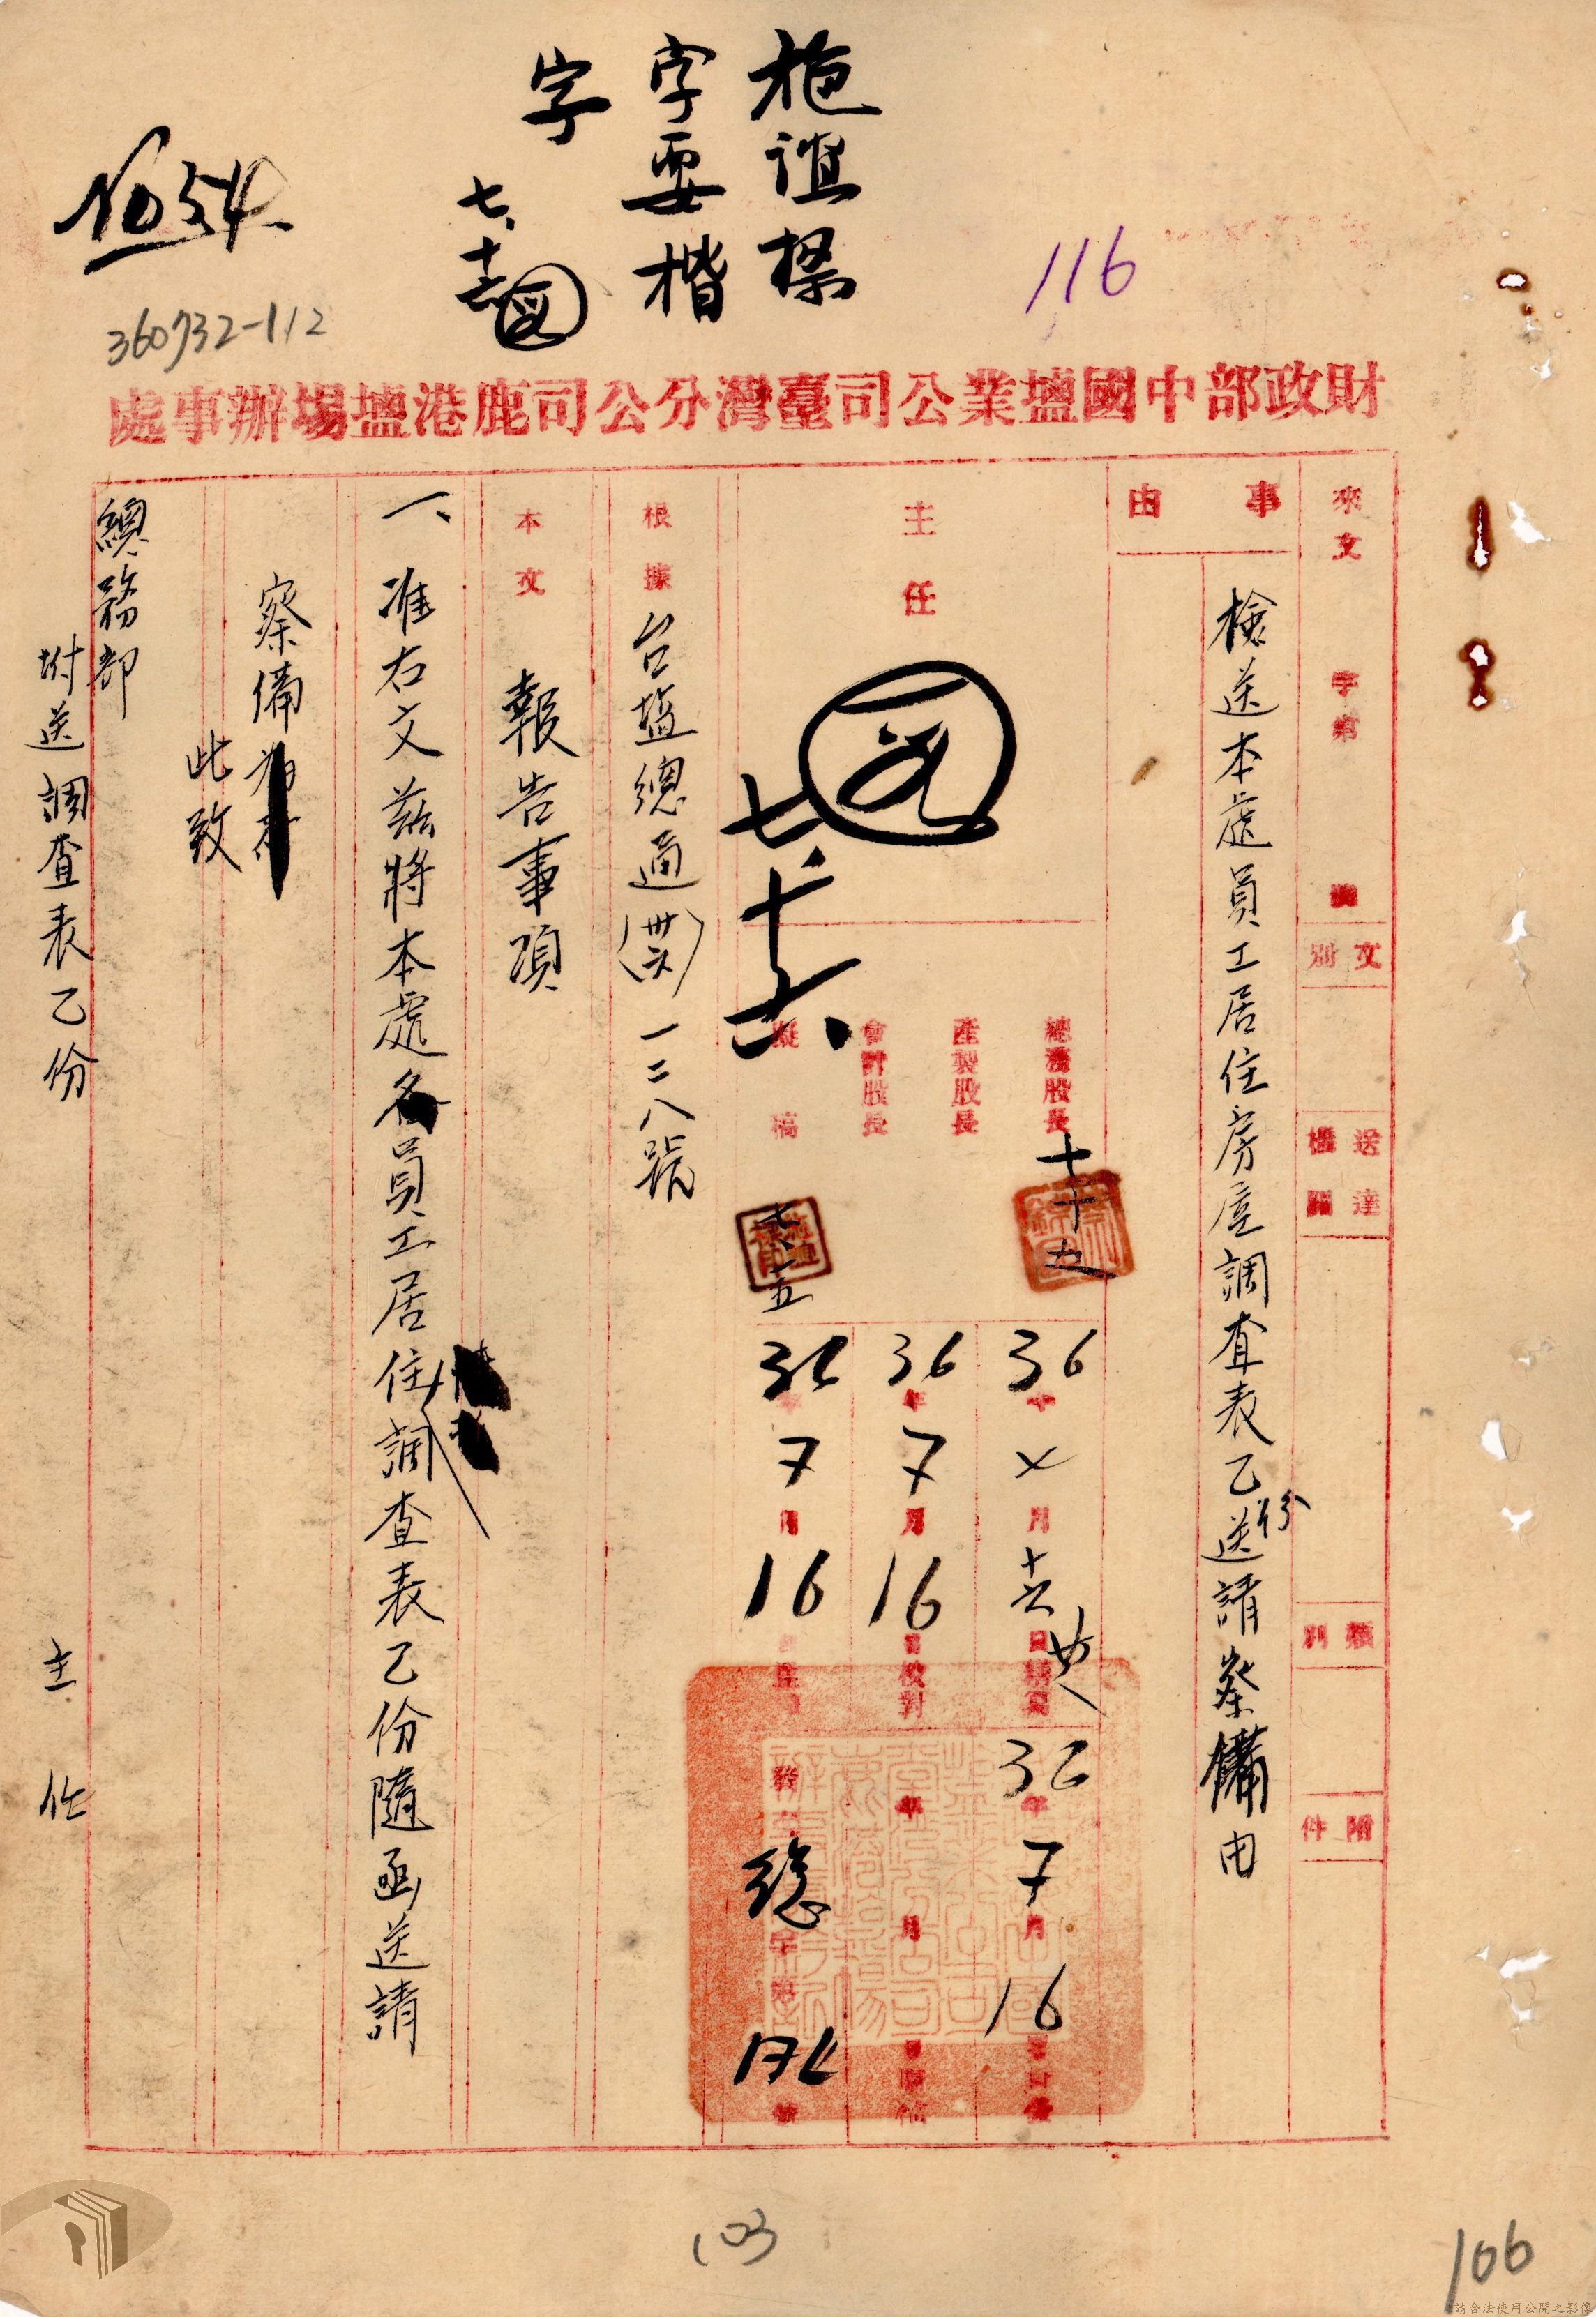 施誼檡
字要楷
字
七、十六
No 54
360732-112
116
財政部中國塩業公司臺灣分公司鹿港塩場辦事處
來文 字第 號
文別
送達機關
類別
附件
事由
檢送本處員工居住房屋調查表乙份送請察備由
主任
七、十六
總務股長
產製股長
會計股長
擬稿
七、十五
36年7月16日校對
36年7月16日
發文總字第 號
根據
台塩總通(卅六)一二八號
本文
報告事項
一、准右文茲將本處員工居住調查表乙份隨函送請
察備
此致
總務部
附送調查表乙份
主任
103
106
請合法使用公開之影像